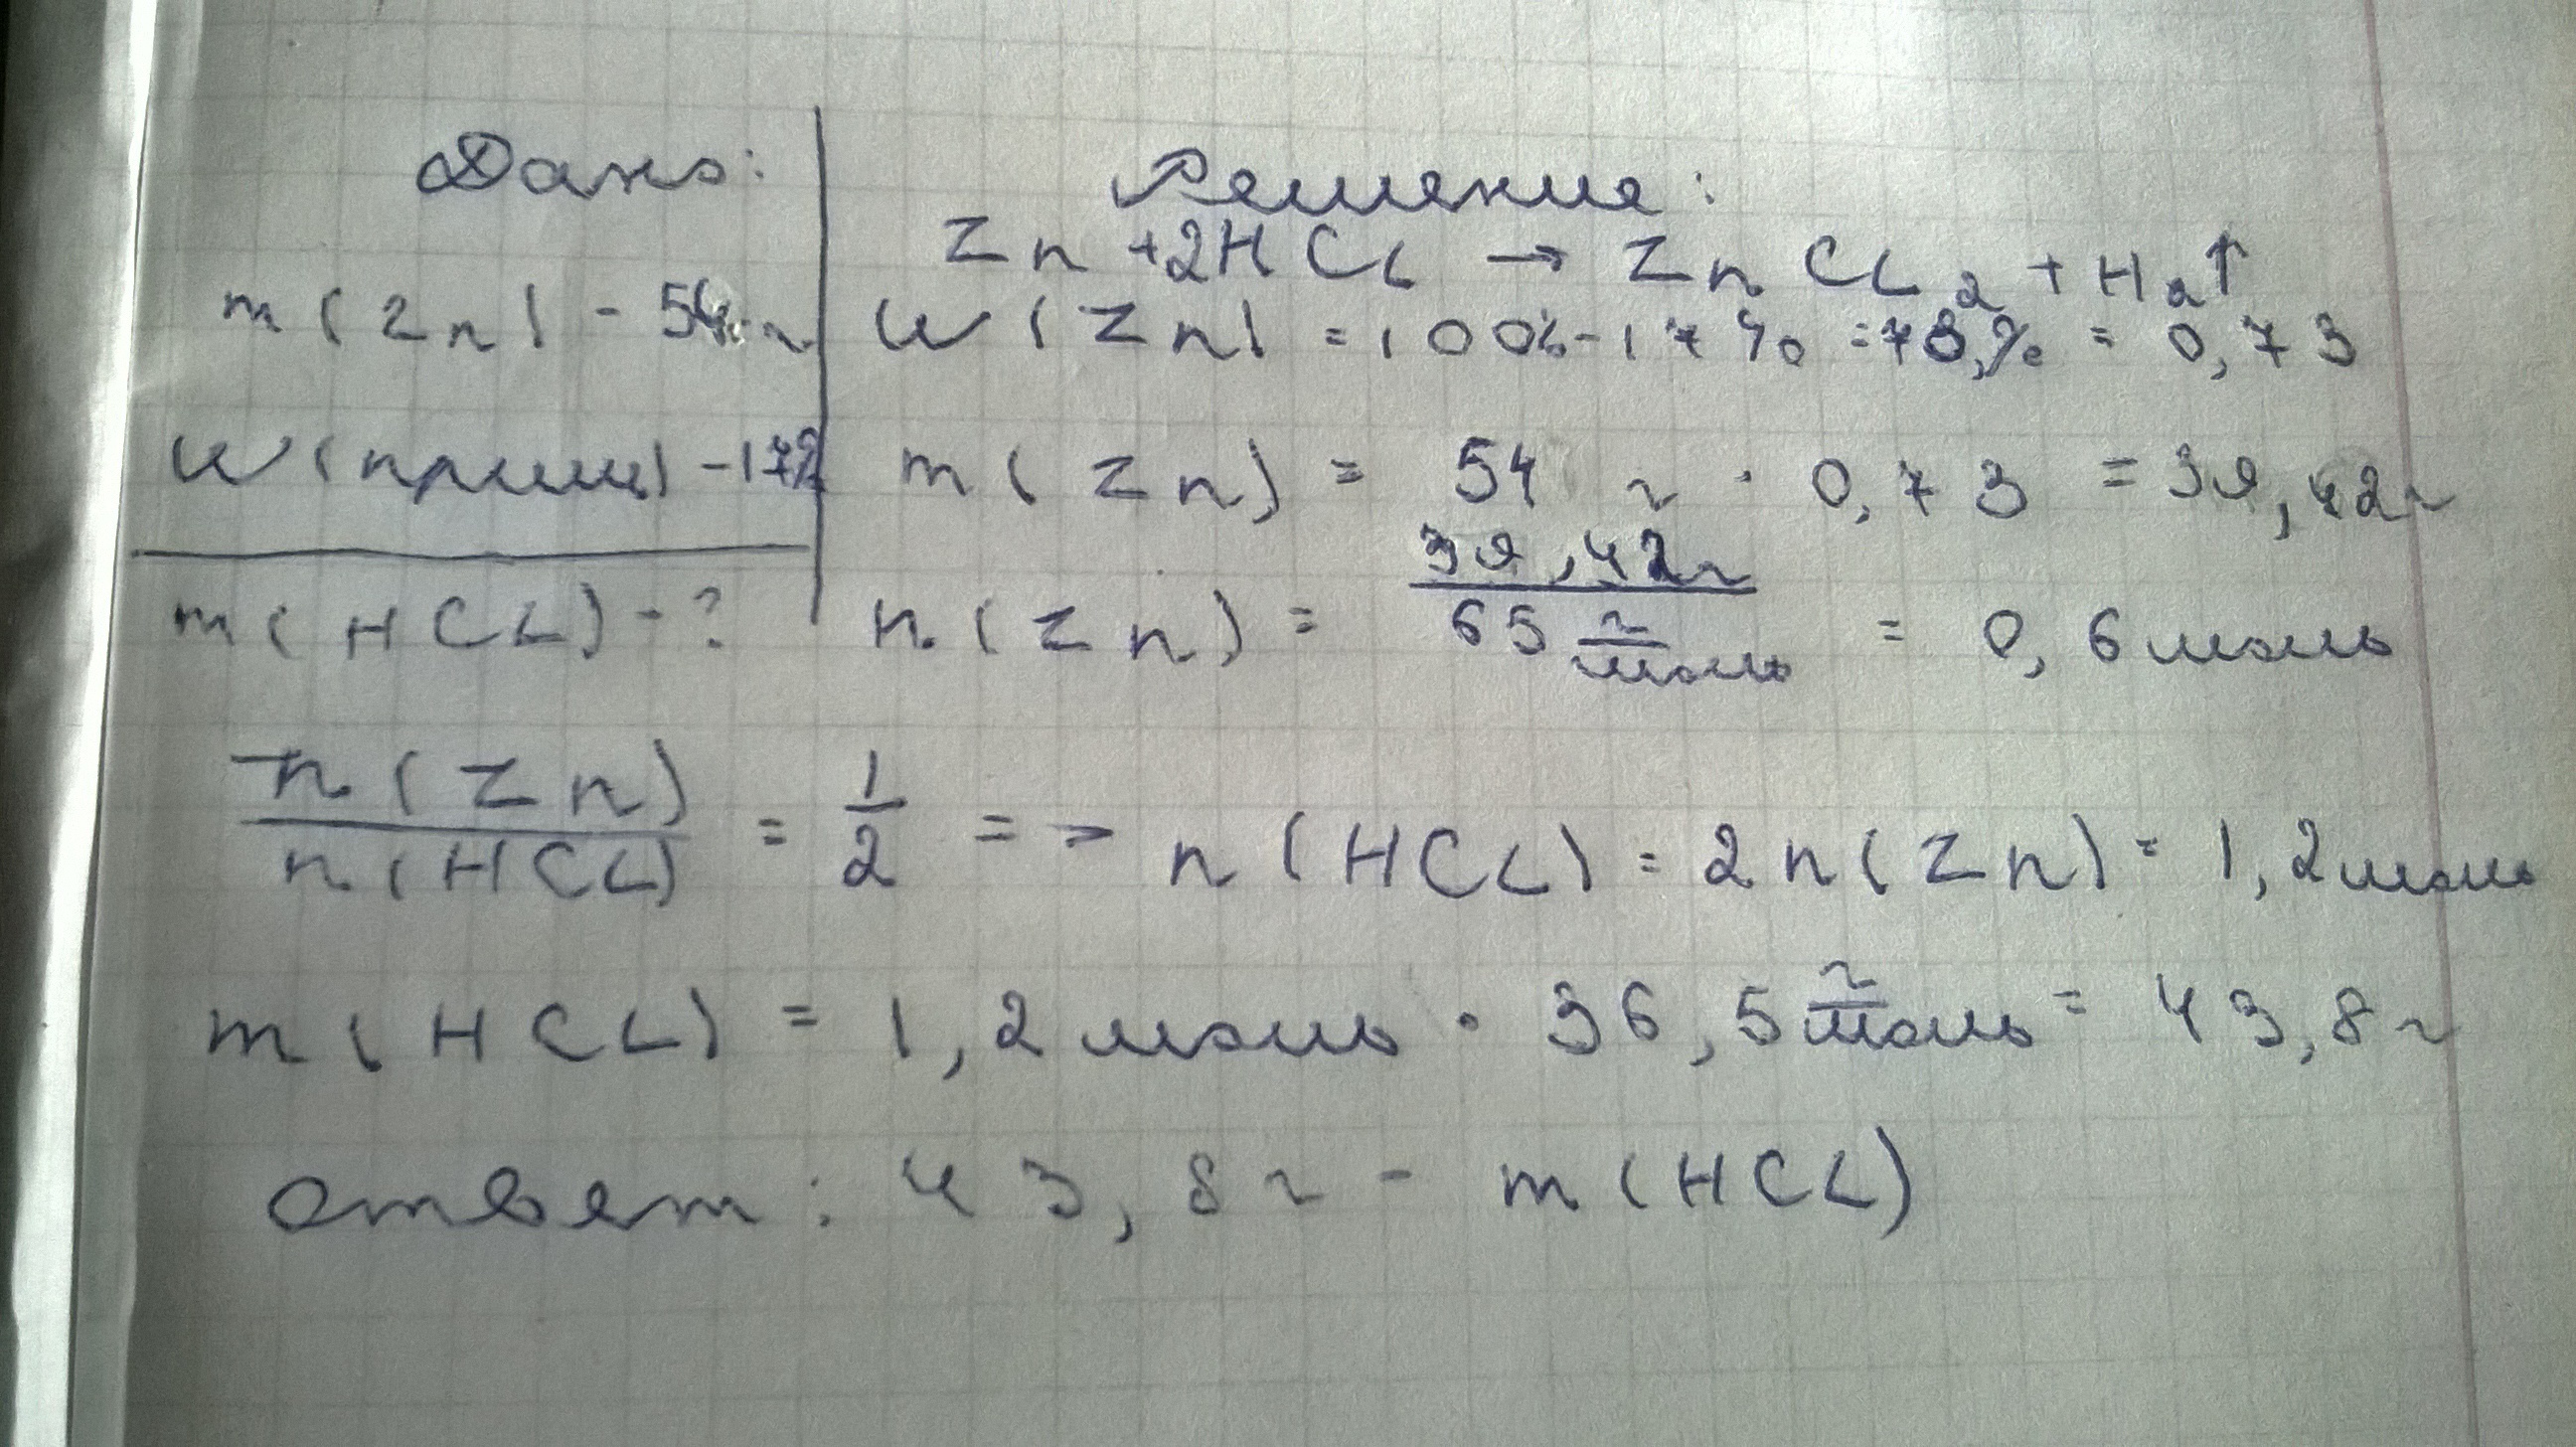 Дано:
m(Zn) - 54 г
w(прим) - 17%
m(HCL) - ?
Решение:
Zn + 2HCL → ZnCL₂ + H₂↑
w(Zn) = 100% - 17% = 73% = 0,73
m(Zn) = 54 г · 0,73 = 39,42г
n(Zn) = 39,42г / 65 г/моль = 0,6 моль
n(Zn) / n(HCL) = 1/2 => n(HCL) = 2n(Zn) = 1,2 моль
m(HCL) = 1,2 моль · 36,5 г/моль = 43,8 г
Ответ: 43,8 г - m(HCL)